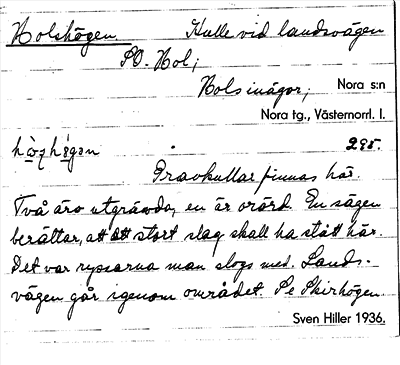 Holshögen Kulle vid landsvägen
PO. Hol;
Hols inägor; Nora s:n
Nora tg., Västernorrl. l.
295.
Gravkullar finnas här.
Två äro utgrävda, en är orörd. En sägen
berättar, att ett stort slag skall ha stått här.
Det var ryssarna man slogs med. Lands-
vägen går igenom området. Se Skirhögen
Sven Hiller 1936.